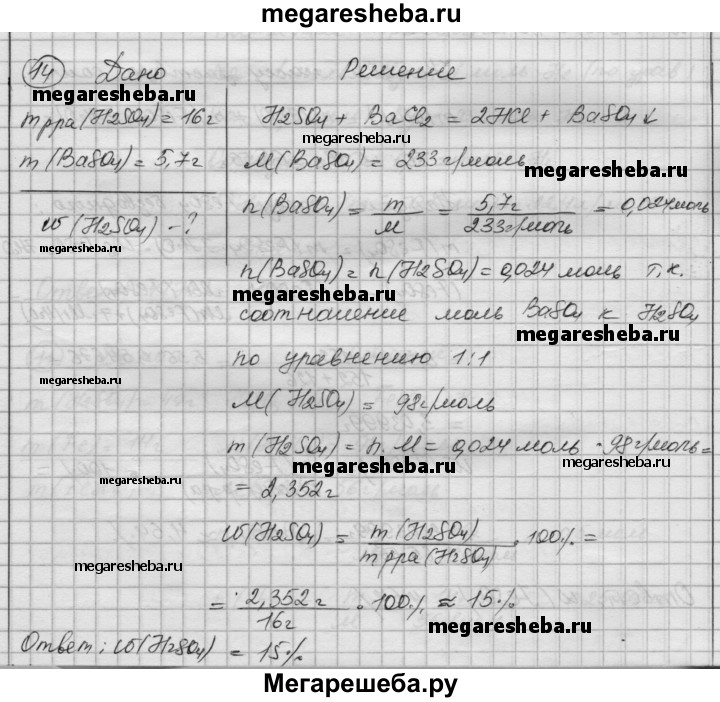 megaresheba.ru
14 Дано Решение
megaresheba.ru
mр-ра(H2SO4) = 16г H2SO4 + BaCl2 = 2HCl + BaSO4↓
megaresheba.ru
m(BaSO4) = 5,7г M(BaSO4) = 233 г/моль
megaresheba.ru
ω(H2SO4) - ? n(BaSO4) = m/M = 5,7г/233г/моль = 0,024моль
megaresheba.ru
n(BaSO4) = n(H2SO4) = 0,024 моль т.к.
megaresheba.ru
соотношение моль BaSO4 к H2SO4
megaresheba.ru
по уравнению 1:1
megaresheba.ru
M(H2SO4) = 98г/моль
m(H2SO4) = n · M = 0,024 моль · 98г/моль =
megaresheba.ru megaresheba.ru
megaresheba.ru
= 2,352г
ω(H2SO4) = m(H2SO4)/mр-ра(H2SO4) · 100% =
megaresheba.ru
= 2,352г/16г · 100% ≈ 15%
megaresheba.ru
Ответ: ω(H2SO4) = 15%
Мегарешеба.ру